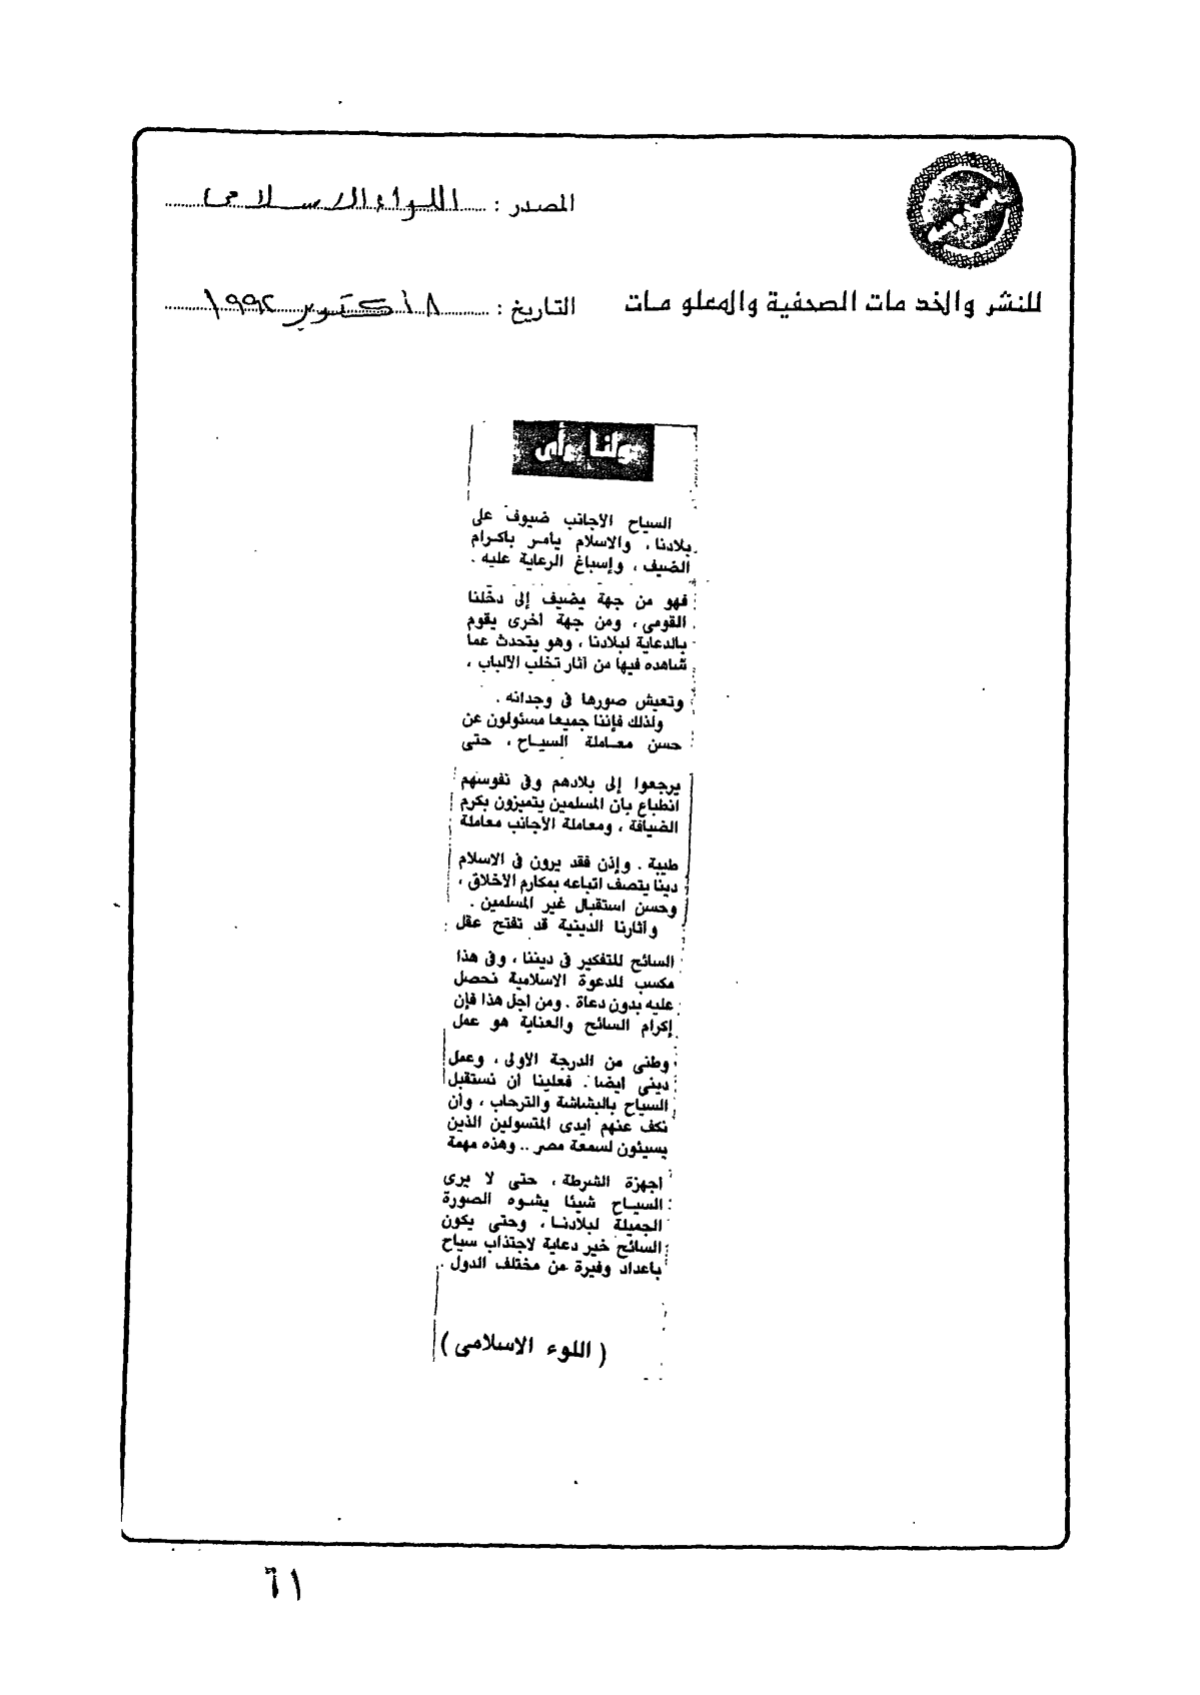 المصدر : اللواء الاسلامى
للنشر والخدمات الصحفية والمعلومات
التاريخ : ٨ أكتوبر ١٩٩٢
ولنا رأى
السياح الأجانب ضيوف على
بلادنا، والاسلام يامر باكرام
الضيف ، وإسباغ الرعاية عليه .
فهو من جهة يضيف إلى دخلنا
القومى ، ومن جهة أخرى يقوم
بالدعاية لبلادنا ، وهو يتحدث عما
شاهده فيها من آثار تخلب الألباب ،
وتعيش صورها فى وجدانه .
ولذلك فإننا جميعا مسئولون عن
حسن معاملة السياح ، حتى
يرجعوا إلى بلادهم وفى نفوسهم
انطباع بان المسلمين يتميزون بكرم
الضيافة ، ومعاملة الأجانب معاملة
طيبة . وإذن فقد يرون فى الاسلام
دينا يتصف اتباعه بمكارم الأخلاق ،
وحسن استقبال غير المسلمين .
وأثارنا الدينية قد تفتح عقل
السائح للتفكير فى ديننا ، وفى هذا
مكسب للدعوة الاسلامية نحصل
عليه بدون دعاة . ومن اجل هذا فإن
إكرام السائح والعناية هو عمل
وطنى من الدرجة الأولى ، وعمل
دينى ايضا . فعلينا ان نستقبل
السياح بالبشاشة والترحاب ، وأن
نكف عنهم ايدى المتسولين الذين
يسيئون لسمعة مصر .. وهذه مهمة
اجهزة الشرطة ، حتى لا يرى
السياح شيئا يشوه الصورة
الجميلة لبلادنا ، وحتى يكون
السائح خير دعاية لاجتذاب سياح
باعداد وفيرة من مختلف الدول .
( اللوء الاسلامى )
٦١